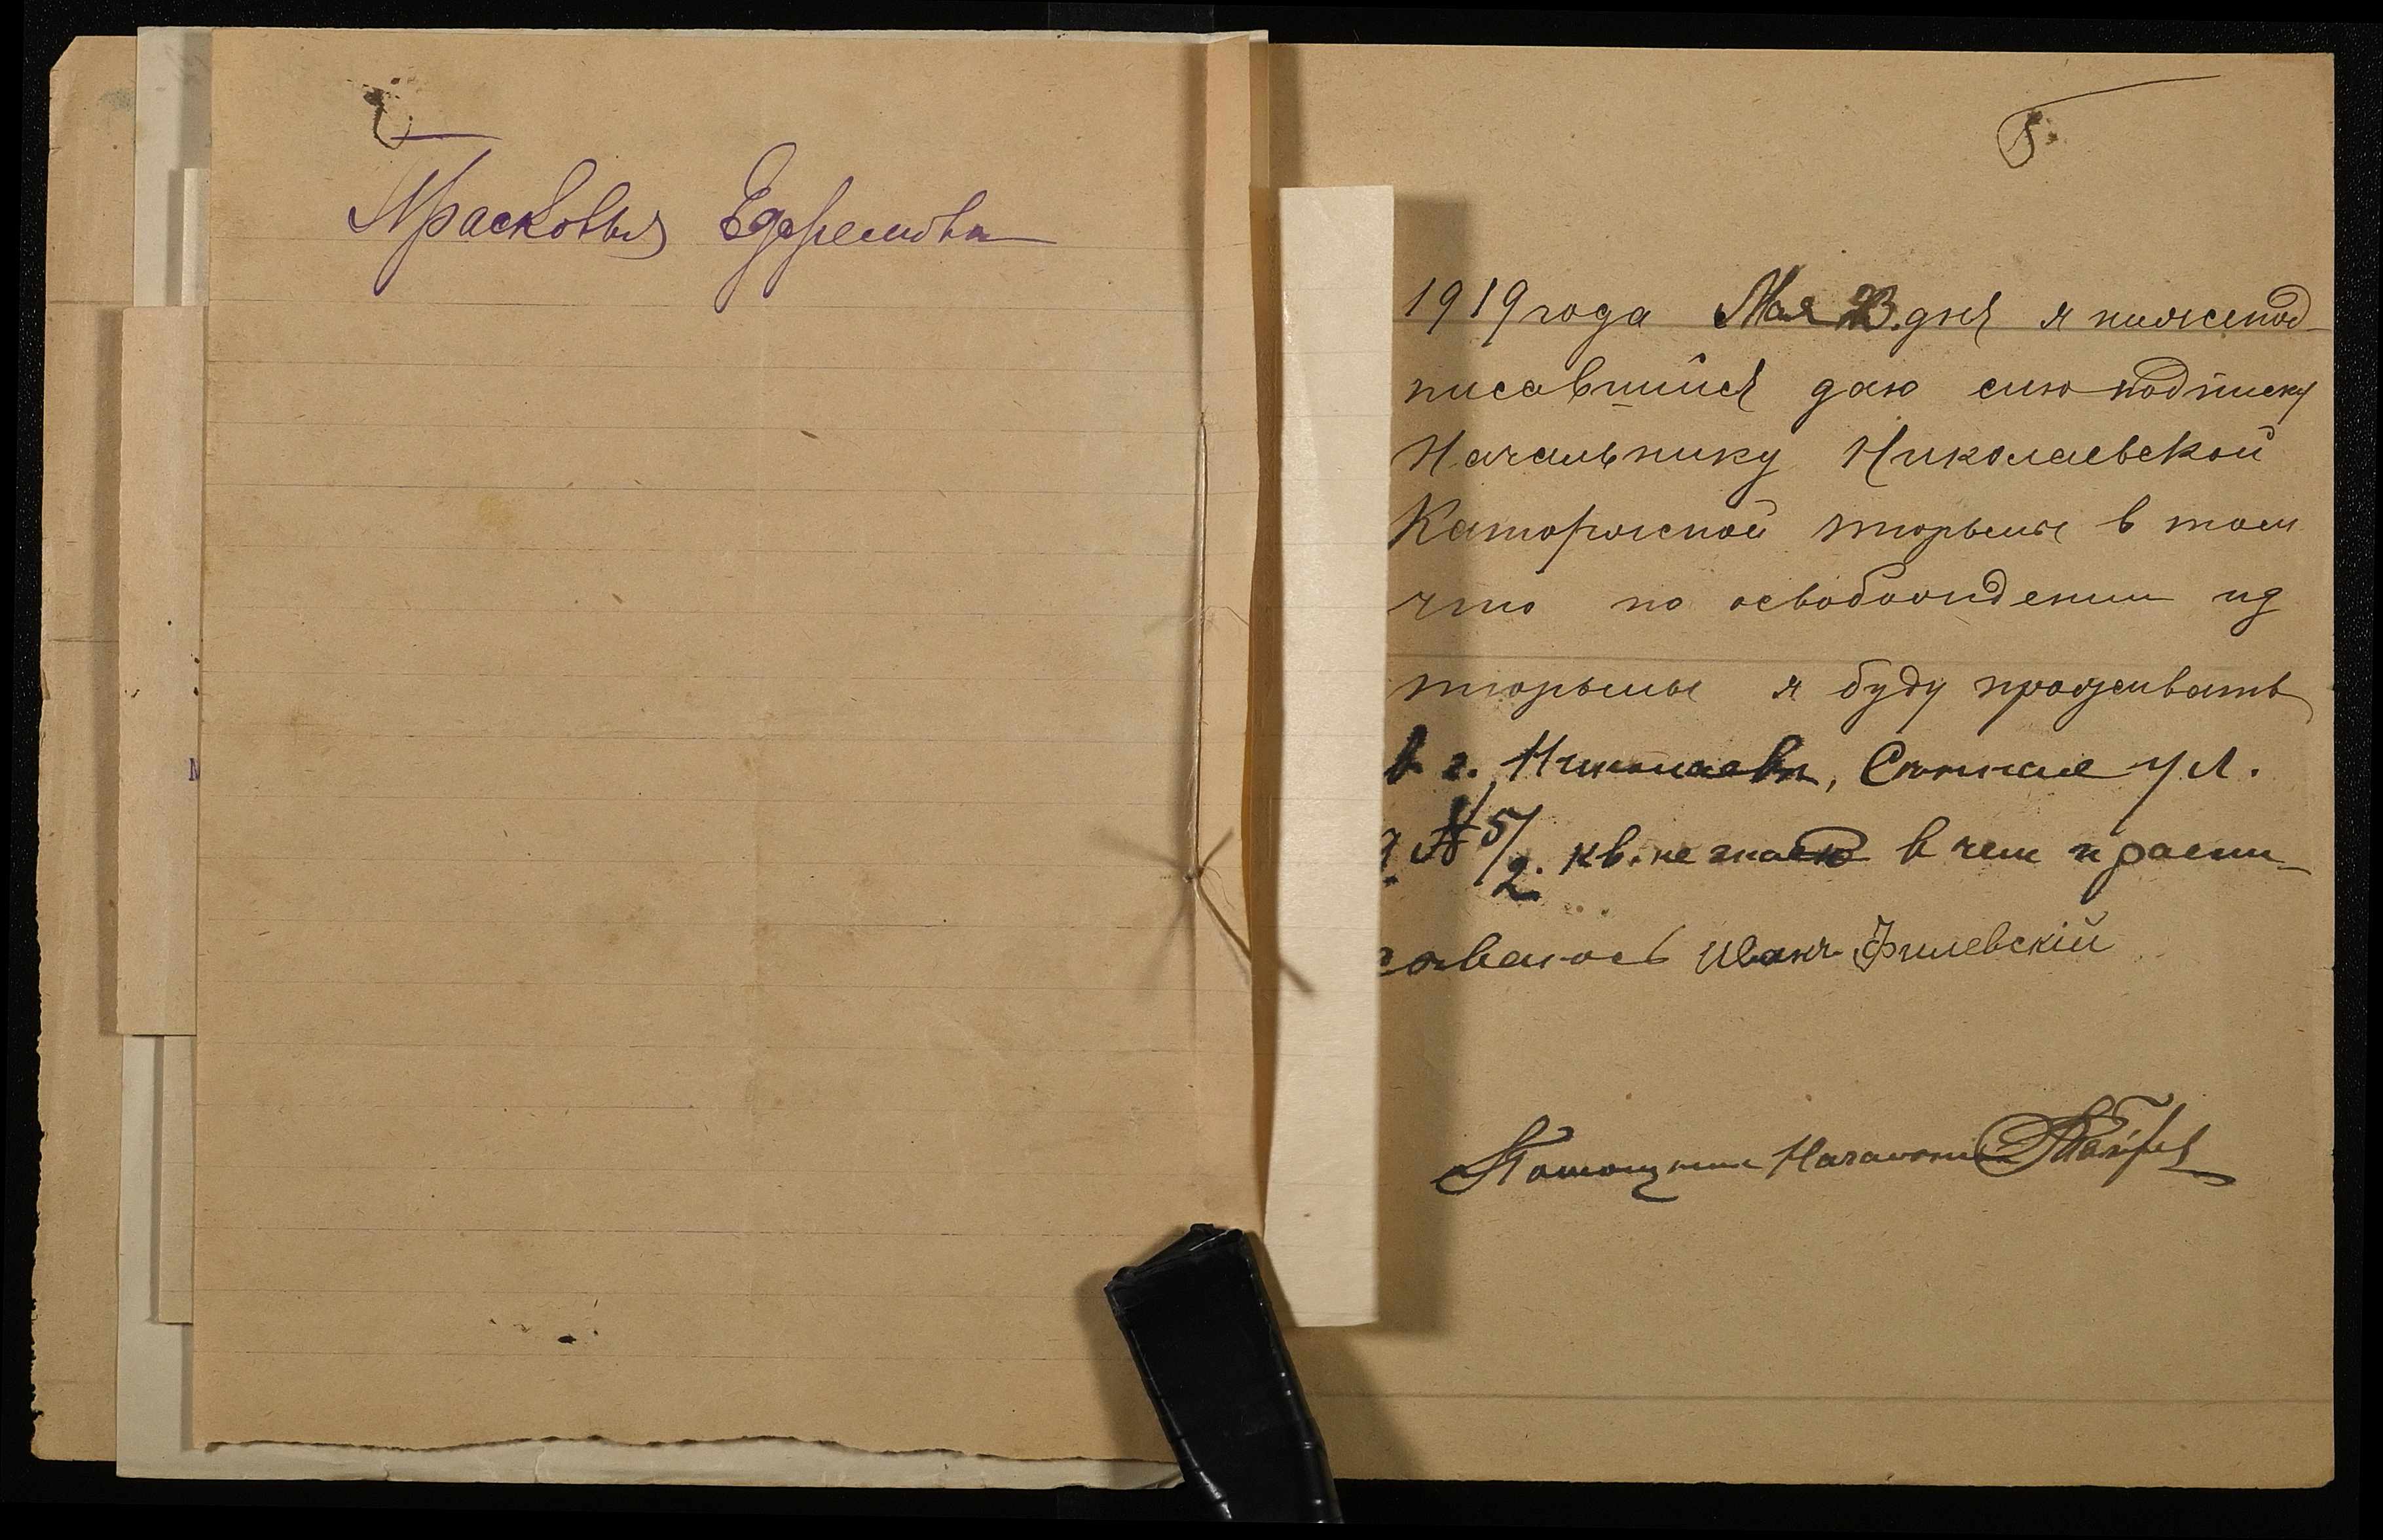 Прасковья Ефремова
5.
1919 года Мая 23. дня я нижепод-
писавшийся даю сию подписку
Начальнику Николаевской
Каторжной тюрьмы в том
что по освобождении из
тюрьмы я буду проживать
в г. Николаеве, Сенная ул.
д № 5/2. кв. не знаю в чем и распи-
сываюсь Иван Филевскій
Помощник Начальника